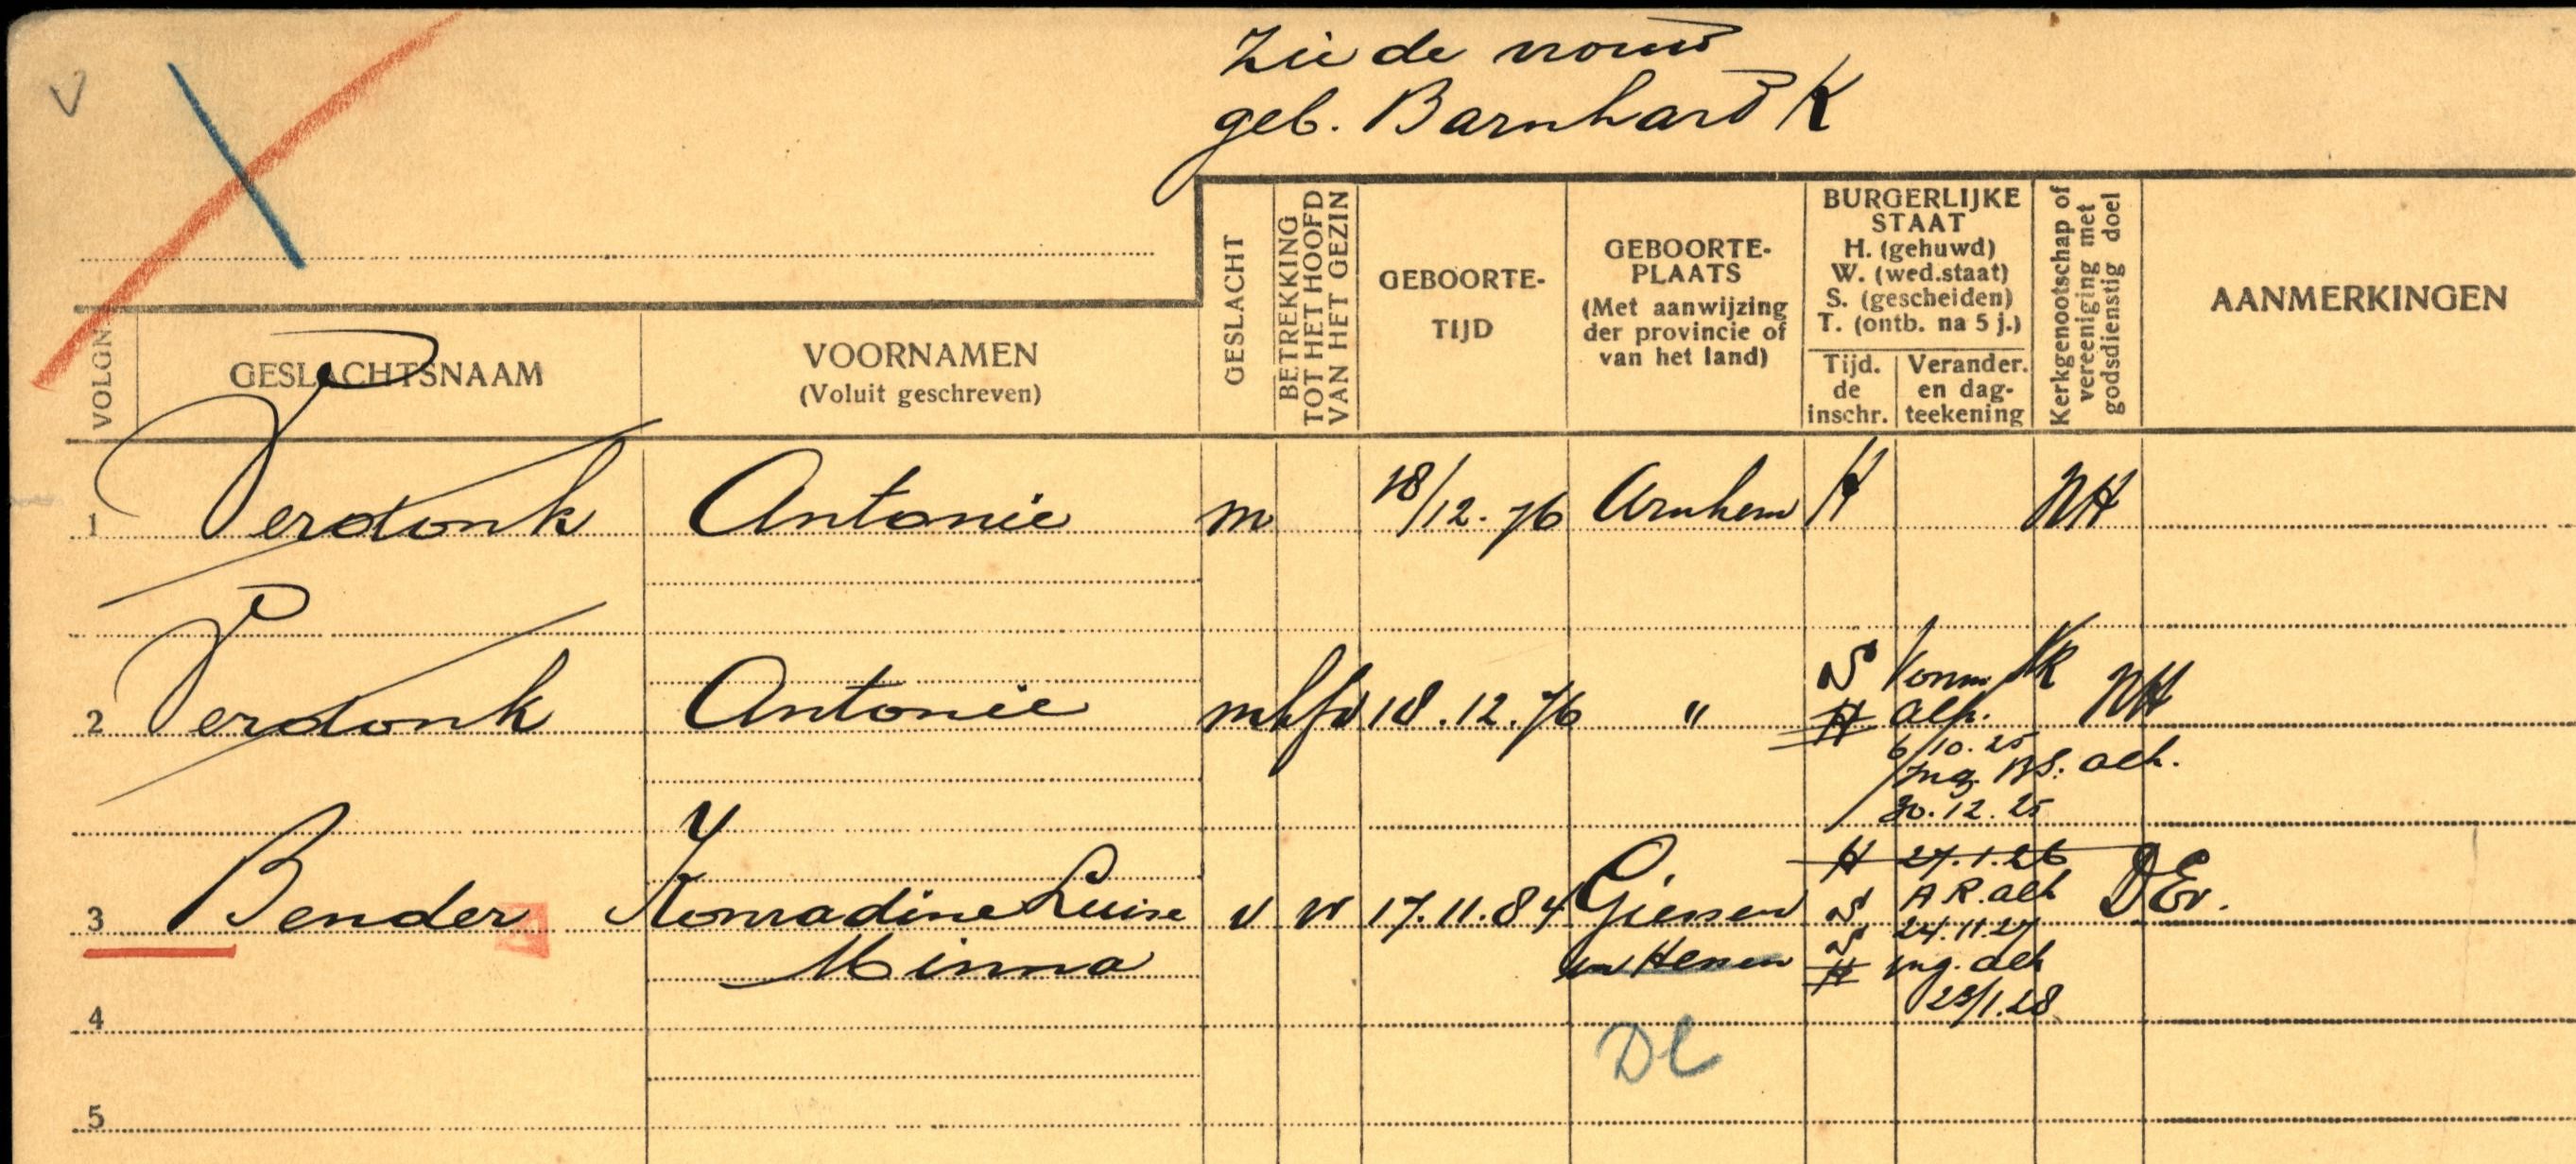 V
Zie de vrouw
geb. Barnhard K
VOLGN.
GESLACHTSNAAM
VOORNAMEN
(Voluit geschreven)
GESLACHT
BETREKKING
TOT HET HOOFD
VAN HET GEZIN
GEBOORTE-
TIJD
GEBOORTE-
PLAATS
(Met aanwijzing
der provincie of
van het land)
BURGERLIJKE
STAAT
H. (gehuwd)
W. (wed.staat)
S. (gescheiden)
T. (ontb. na 5 j.)
Tijd.
de
inschr.
Verander.
en dag-
teekening
Kerkgenootschap of
vereeniging met
godsdienstig doel
AANMERKINGEN
1 Verdonk Antonie m 18/12.76 Arnhem H NH
2 Verdonk Antonie m hfd 18.12.76 " S H NH
6/10.25
ing. BS. alh.
30.12.25
H 27.1.26
3 Bender Konradine Luise v vr 17.11.84 Giessen S A.R. alh D Ev.
24.11.27
Minna Hessen S H ing. alh
23/1.28
4
Dl
5